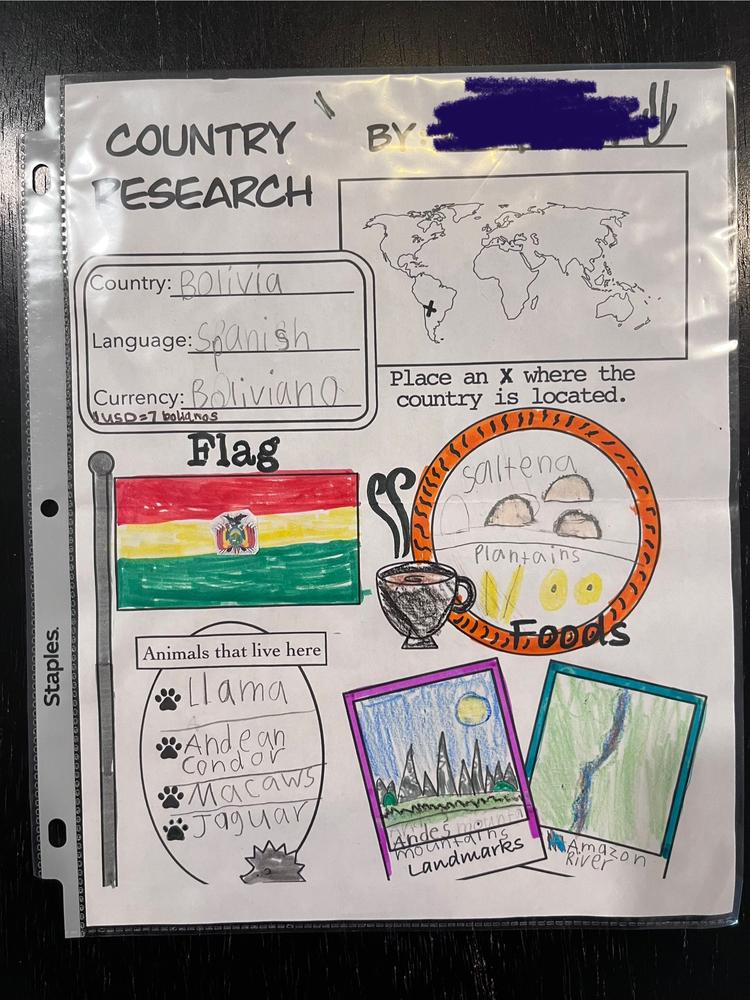 COUNTRY
RESEARCH
BY:
Country: Bolivia
Language: Spanish
Currency: Boliviano
1 USD = 7 bolianos
Place an X where the
country is located.
Flag
Salteña
Plantains
Foods
Animals that live here
Llama
Andean
condor
Macaws
Jaguar
Andes
mountains
Landmarks
Amazon
River
Staples.